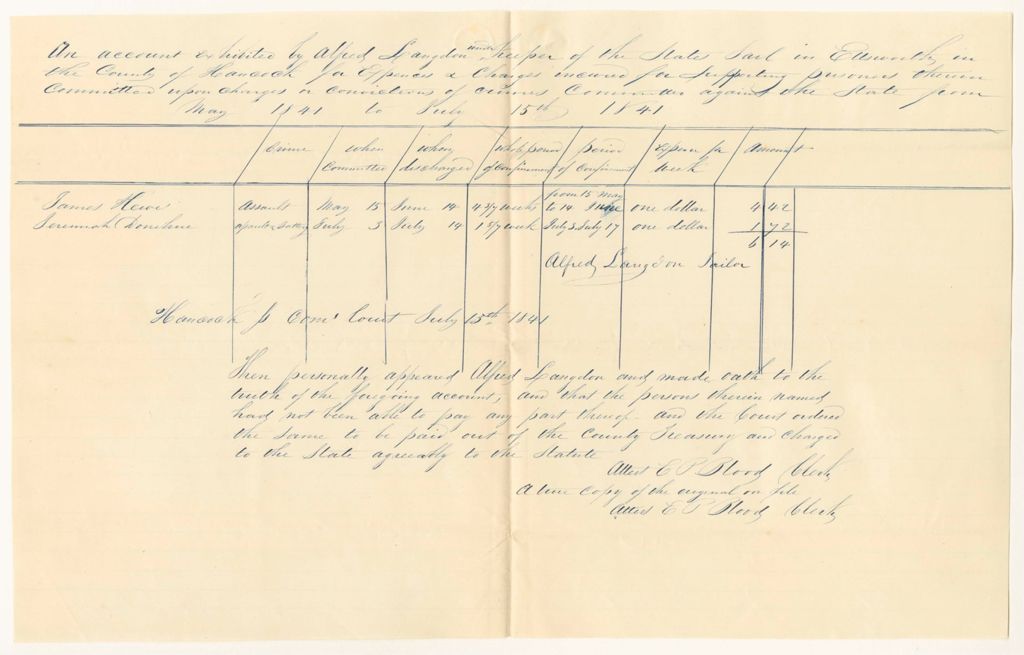 An account exhibited by Alfred Langdon under Keeper of the States Jail in Ellsworth in
the County of Hancock for Expences & Charges incured for Supporting prisoners therein
Committed upon charges or convictions of crimes Committed against the State from
May 1841 to July 15th 1841
Crime when Committed when discharged whole period of Confinement period of Confinement Expence per week Amount
James Assault May 15 June 14 4 3/7 weeks from 15 May to 14 June one dollar 4 42
Jeremiah Donahue July 3 July 14 1 5/7 week July 3 July 17 one dollar 1 72
6 14
Alfred Langdon Jailor
Hancock ss Com' Court July 15th 1841
Then personally appeared Alfred Langdon and made oath to the
truth of the foregoing account, and that the persons therein named
had not been able to pay any part thereof - and the Court ordered
the same to be paid out of the County Treasury and charged
to the State agreeably to the Statute
Attest E P Clerk
A true copy of the original on file
Attest E P Clerk